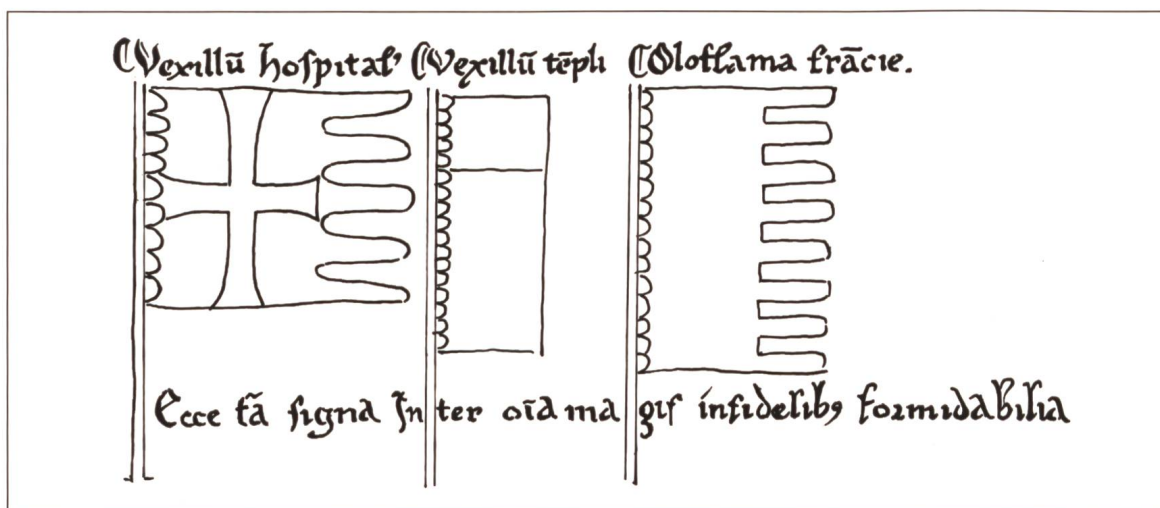 Vexillū hospital' Vexillū tēpli Oloflama frācie.
Ecce tā signa Inter oīa magis infidelibꝰ formidabilia